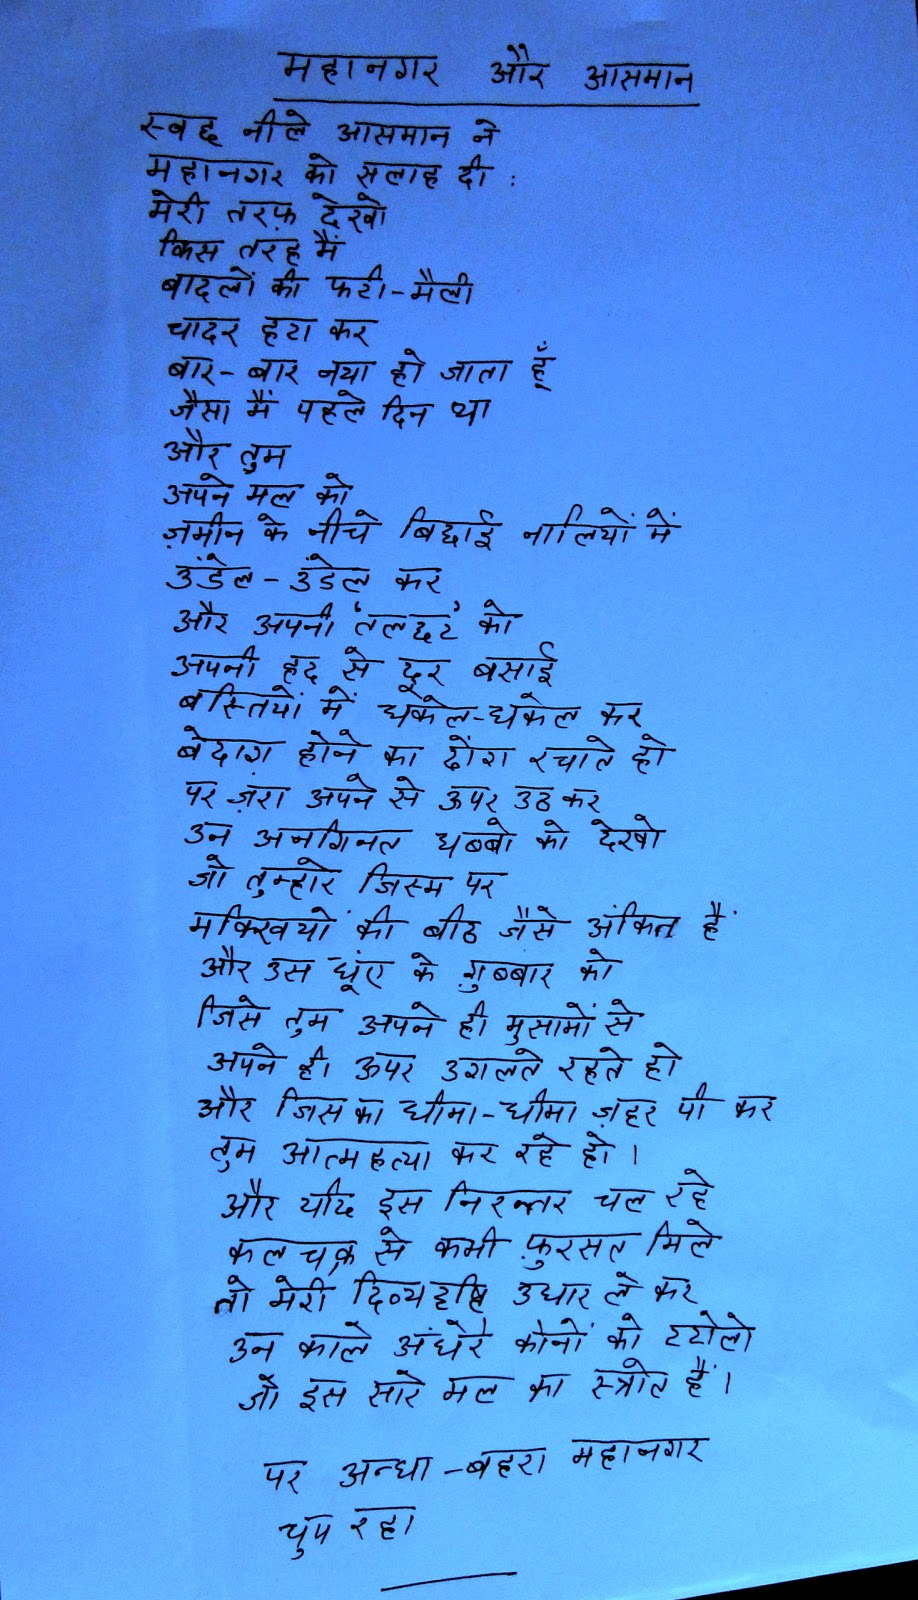 महानगर और आसमान
स्वछ नीले आसमान ने
महानगर को सलाह दी :
मेरी तरफ़ देखो
किस तरह मैं
बादलों की फटी-मैली
चादर हटा कर
बार-बार नया हो जाता हूँ
जैसा मैं पहले दिन था
और तुम
अपने मल को
ज़मीन के नीचे बिछाई नालियों में
उंडेल-उंडेल कर
और अपनी 'तलछट' को
अपनी हद से दूर बसाई
बस्तियों में धकेल-धकेल कर
बेदाग़ होने का ढोंग रचाते हो
पर ज़रा अपने से ऊपर उठ कर
उन अनगिनत धब्बो को देखो
जो तुम्हारे जिस्म पर
मक्खियों की बीठ जैसे अंकित हैं
और उस धूंए के ग़ुब्बार को
जिसे तुम अपने ही मुसामों से
अपने ही ऊपर उगलते रहते हो
और जिस का धीमा-धीमा ज़हर पी कर
तुम आत्महत्या कर रहे हो।
और यदि इस निरन्तर चल रहे
कलचक्र से कभी फ़ुरसत मिले
तो मेरी दिव्यदृष्टि उधार ले कर
उन काले अंधेरे कोनों को टटोलो
जो इस सारे मल का स्त्रोत हैं।
पर अन्धा-बहरा महानगर
चुप रहा